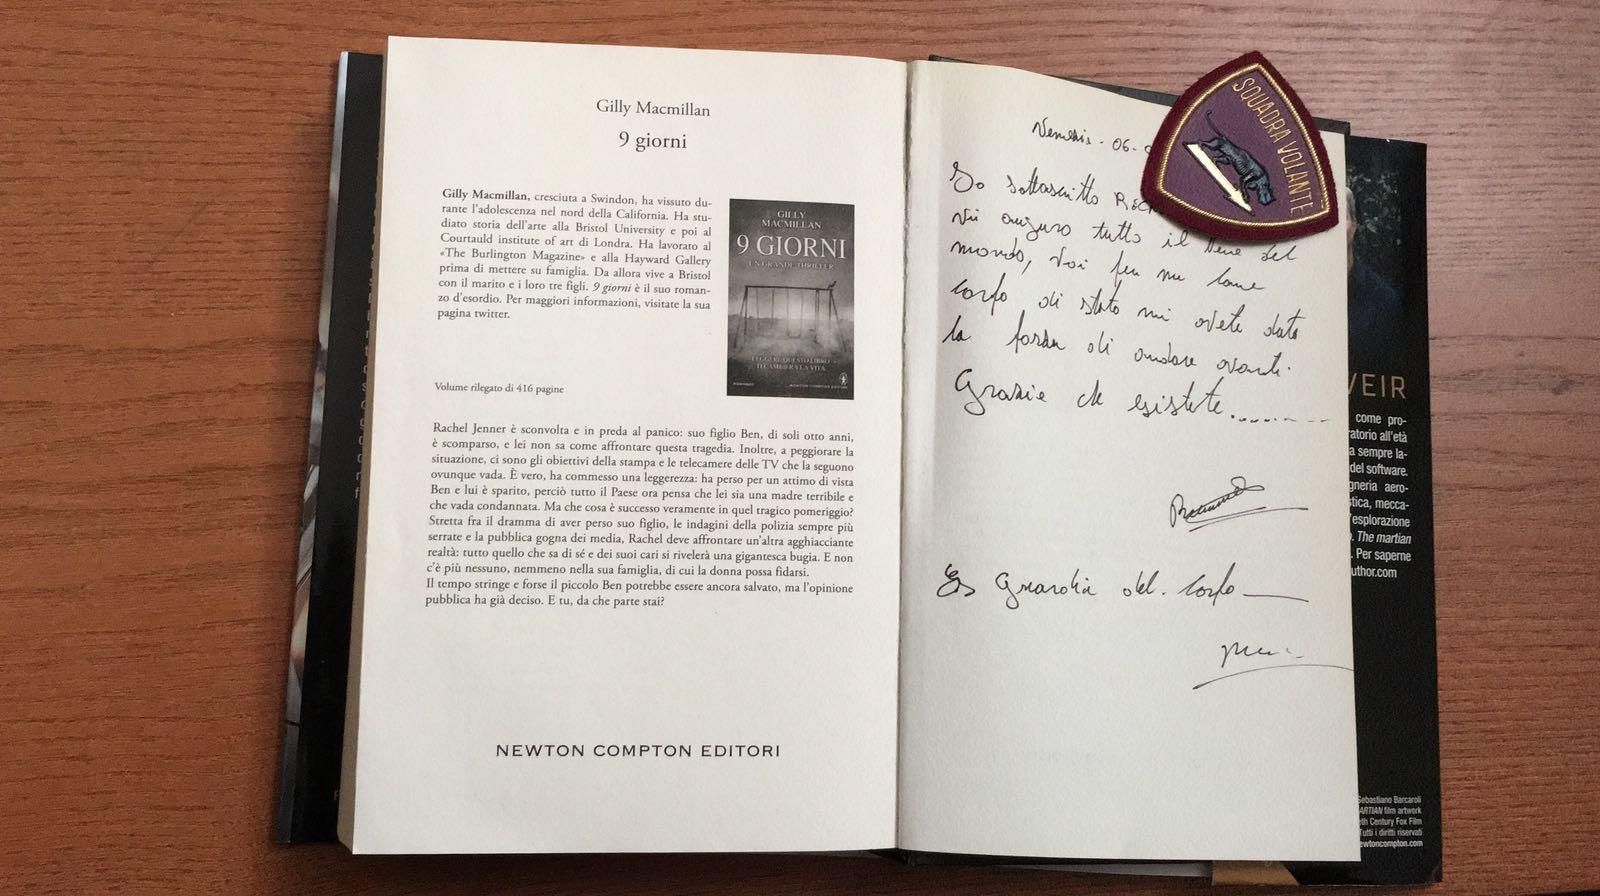 Gilly Macmillan
9 giorni
Gilly Macmillan, cresciuta a Swindon, ha vissuto du-
rante l'adolescenza nel nord della California. Ha stu-
diato storia dell'arte alla Bristol University e poi al
Courtauld institute of art di Londra. Ha lavorato al
«The Burlington Magazine» e alla Hayward Gallery
prima di mettere su famiglia. Da allora vive a Bristol
con il marito e i loro tre figli. 9 giorni è il suo roman-
zo d'esordio. Per maggiori informazioni, visitate la sua
pagina twitter.
GILLY
MACMILLAN
9 GIORNI
UN GRANDE THRILLER
LEGGERE QUESTO LIBRO
TI CAMBIERÀ LA VITA
NEWTON COMPTON EDITORI
Volume rilegato di 416 pagine
Rachel Jenner è sconvolta e in preda al panico: suo figlio Ben, di soli otto anni,
è scomparso, e lei non sa come affrontare questa tragedia. Inoltre, a peggiorare la
situazione, ci sono gli obiettivi della stampa e le telecamere delle TV che la seguono
ovunque vada. È vero, ha commesso una leggerezza: ha perso per un attimo di vista
Ben e lui è sparito, perciò tutto il Paese ora pensa che lei sia una madre terribile e
che vada condannata. Ma che cosa è successo veramente in quel tragico pomeriggio?
Stretta fra il dramma di aver perso suo figlio, le indagini della polizia sempre più
serrate e la pubblica gogna dei media, Rachel deve affrontare un'altra agghiacciante
realtà: tutto quello che sa di sé e dei suoi cari si rivelerà una gigantesca bugia. E non
c'è più nessuno, nemmeno nella sua famiglia, di cui la donna possa fidarsi.
Il tempo stringe e forse il piccolo Ben potrebbe essere ancora salvato, ma l'opinione
pubblica ha già deciso. E tu, da che parte stai?
NEWTON COMPTON EDITORI
SQUADRA VOLANTE
06-
Io sottoscritto
Vi auguro tutto il bene del
mondo, Voi per me come
corpo di stato mi avete dato
la forza di andare avanti.
Grazie che esistete..........
Guardia del. corpo
VEIR
come pro-
ratorio all'età
a sempre la-
del software.
gneria aero-
stica, mecca-
l'esplorazione
The martian
Per saperne
uthor.com
Sebastiano Barcaroli
ARTIAN film artwork
eth Century Fox Film
Tutti i diritti riservati
ewtoncompton.com